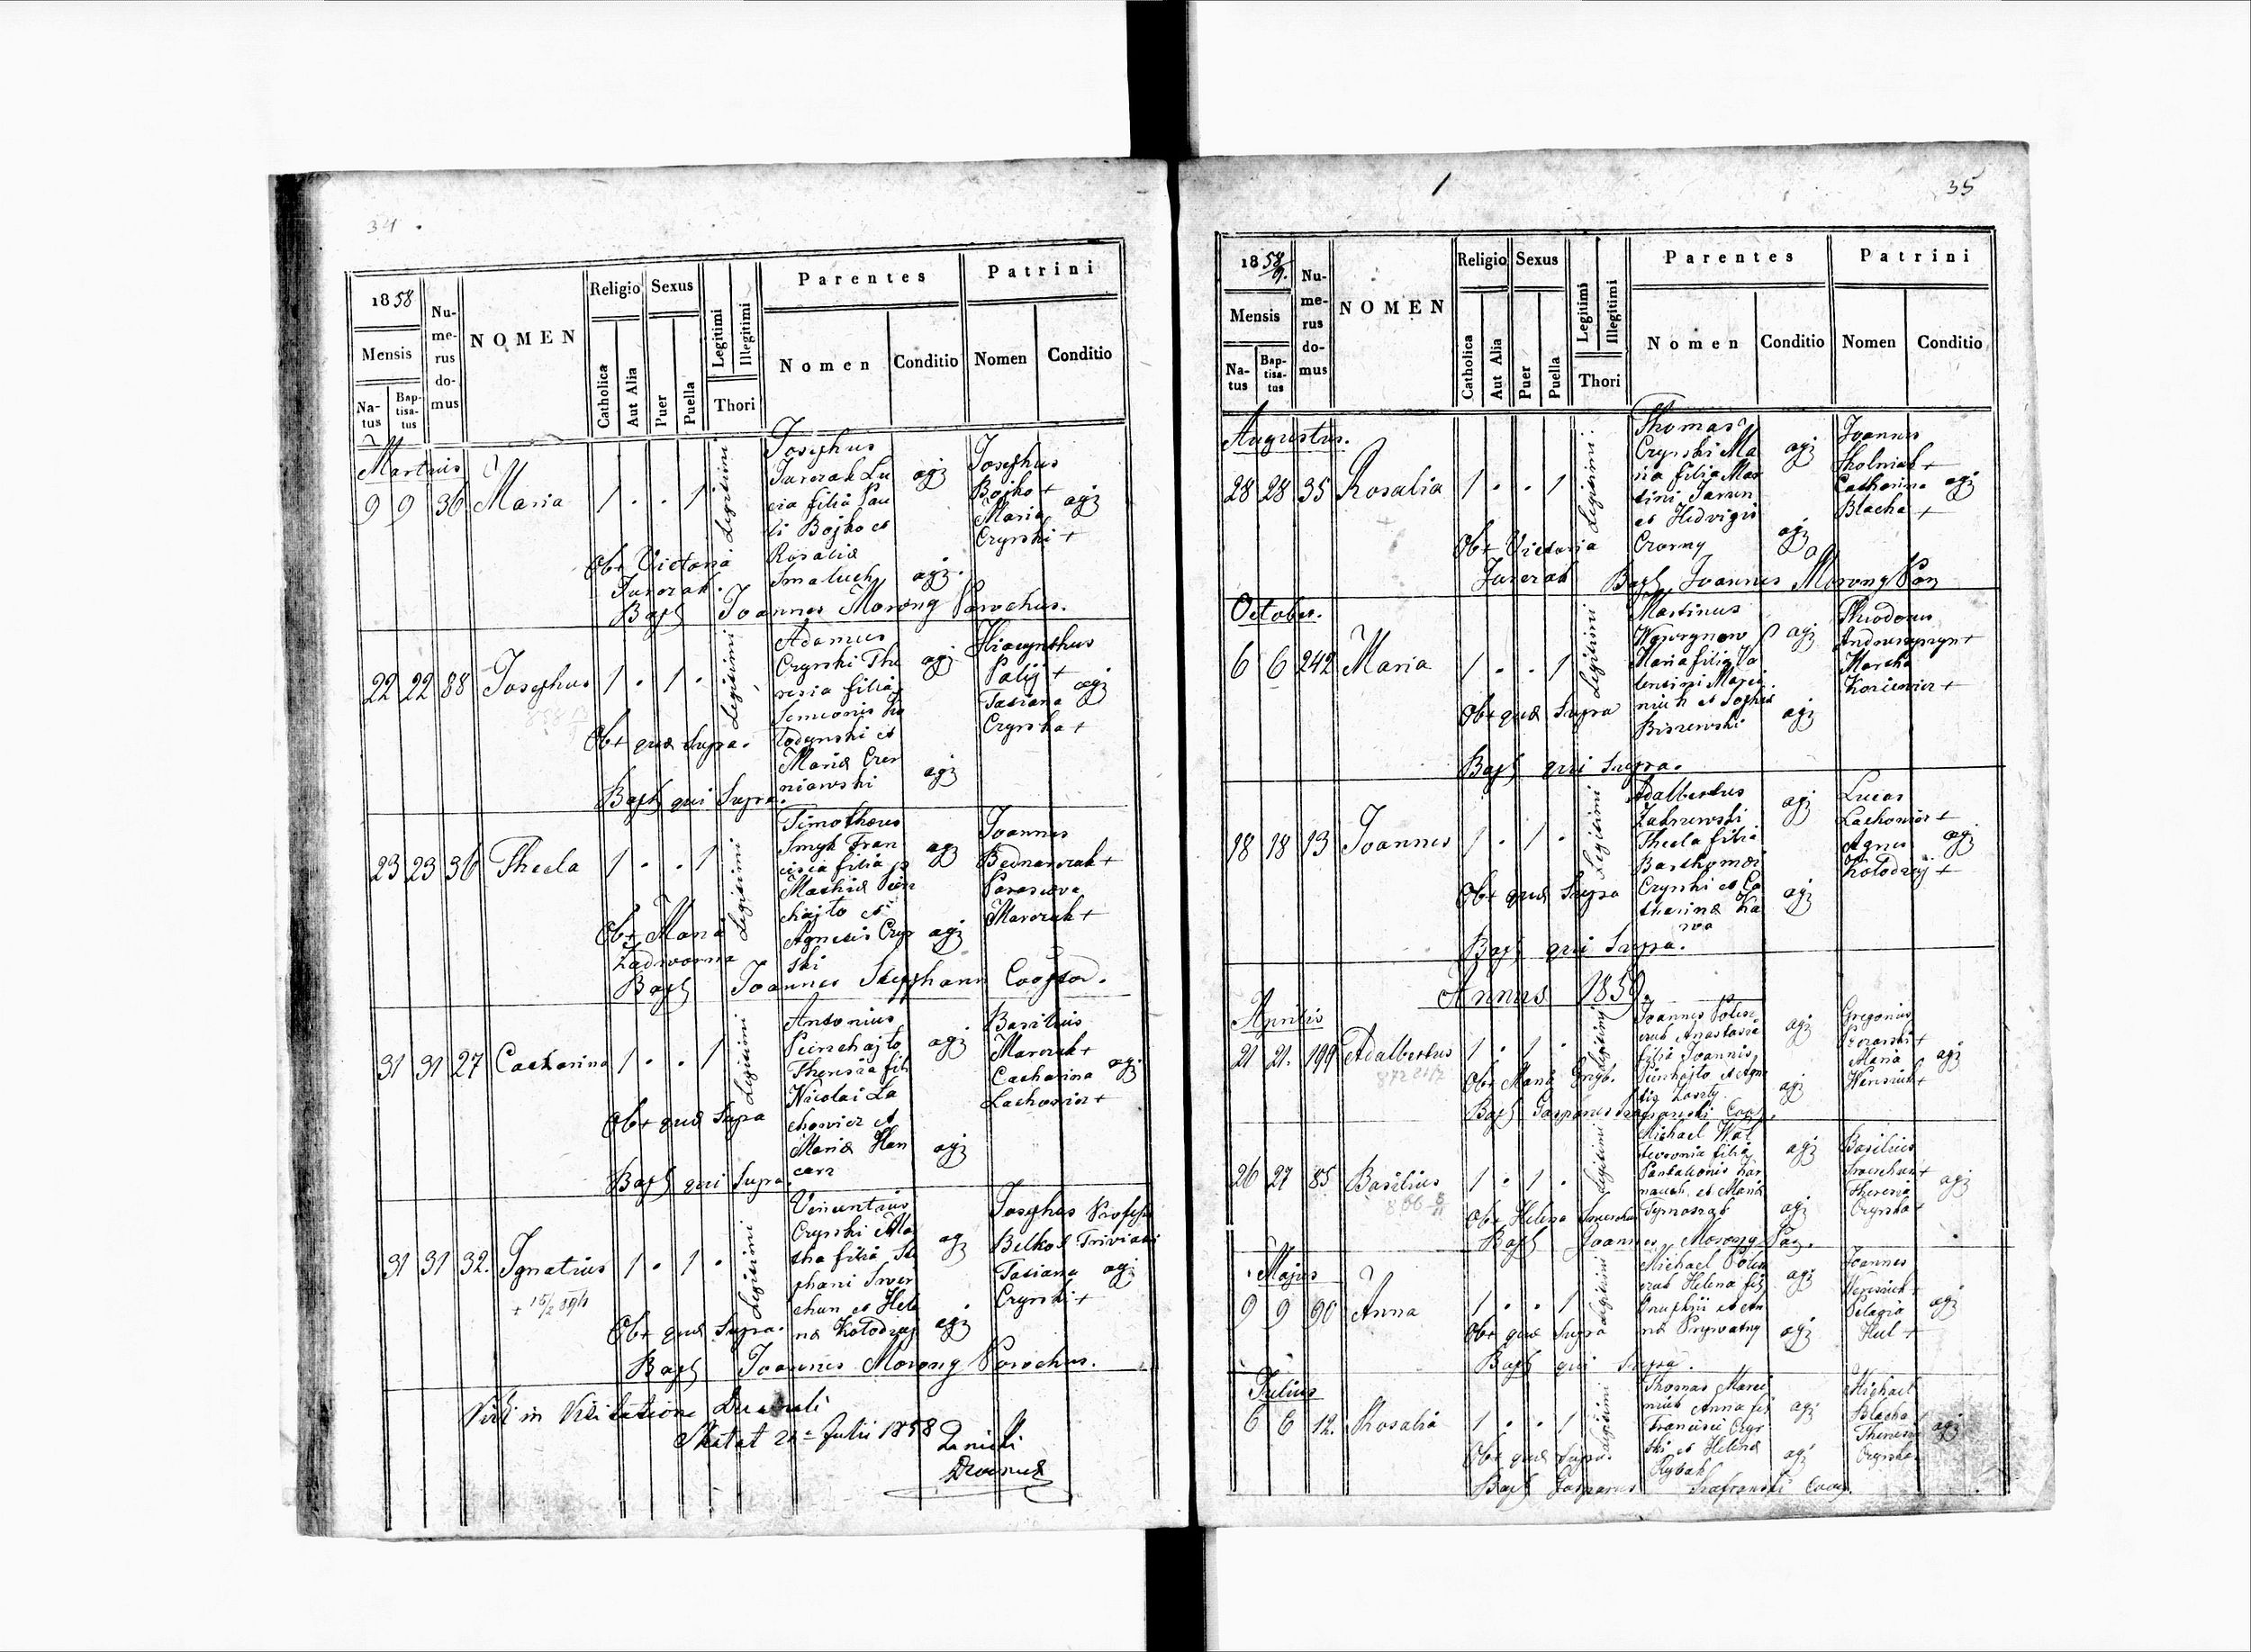 34
1858
Mensis
Na-
tus
Bap-
tisa-
tus
Nu-
me-
rus
do-
mus
NOMEN
Religio
Catholica
Aut Alia
Sexus
Puer
Puella
Legitimi
Illegitimi
Thori
Parentes
Nomen
Conditio
Patrini
Nomen
Conditio
Martius
9 9 36 Maria 1 . . 1 Legitimi
Josephus
Jurczak Lu
cia filia Pau
li Bojko et
Rosaliæ
Smaluch
agr
agr.
Josephus
Bojko +
Maria
Czyrski +
agr
Obst Victoria
Jurczak.
Bapt Joannes Morong Parochus.
22 22 88 Josephus 1 . 1 . Legitimi
Adamus
Czyrski The
resia filia
Simeonis
et
Mariæ Czer
niawski
agr
agr
Hiacynthus
Palij +
Tatiana
Czyrska +
agr
Obst quæ Supra.
Bapt qui Supra.
23 23 36 Thecla 1 . . 1 Legitimi
Timotheus
Smyk Fran
cisca filia
Mathiæ Pien
chajto et
Agnetis Czyr
ski
agr
agr
Joannes
Bednarczuk +
Parasceva
Marczuk +
Obst Maria
Zadworna
Bapt Joannes Stephann Cooptor.
31 31 27 Catharina 1 . . 1 Legitimi
Antonius
Pienchajto
Theresia fili
Nicolai La
chowicz et
Mariæ Han
czarz
agr
agr
Basilius
Marczuk +
Catharina
Lachowicz +
agr
Obst quæ Supra
Bapt qui Supra.
31 31 32. Ignatius 1 . 1 . Legitimi
Vincentius
Czyrski Ma
tha filia Ste
phani Swer
chun et Hele
næ Kołodzej
agr
agr
Josephus Profess
Belkot Trivial
Tatiana agr
Czyrski +
Obst quæ Supra.
Bapt Joannes Morong Parochus.
Vidi in Visitatione Decanali
Skałat 21 Julii 1858
35
1858/9.
Mensis
Na-
tus
Bap-
tisa-
tus
Nu-
me-
rus
do-
mus
NOMEN
Religio
Catholica
Aut Alia
Sexus
Puer
Puella
Legitimi
Illegitimi
Thori
Parentes
Nomen
Conditio
Patrini
Nomen
Conditio
Augustus.
28 28 35 Rosalia 1 . . 1 Legitimi
Thomas
Czyrski Ma
ria filia Mar
tini
et Hedvigis
Czarny
agr
agr
Joannes
Skolniak +
Catharina
Blacha +
agr
Obst Victoria
Jurczak Bapt Joannes Morong Par
October.
6 6 242 Maria 1 . . 1 Legitimi
Martinus
Maria filia Va
lentini
et Sophiæ
Biszewski
agr
agr
Theodorus
Andruszczyszyn +
Martha
Korzeniewicz +
Obst quæ Supra
Bapt qui Supra.
18 18 13 Joannes 1 . 1 . Legitimi
Adalbertus
Zakrzewski
Thecla filia
Bartholomæi
Czyrski et Ca
tharinæ Ka
wa
agr
agr
Lucas
Lachowicz +
Agnes
Kołodzij +
agr
Obst quæ Supra
Bapt qui Supra.
Annus 1859.
Aprilis
21 21. 199 Adalbertus 1 . 1 . Legitimi
872 21/2
filia Joannis
Pienhajto et Agne
tis Zasty
agr
agr
Gregorius
Maria
Wensiuk +
agr
Obst Maria Gryb.
Bapt Gasparus Szafranski Coop.
26 27 85 Basilius 1 . 1 . Legitimi
Michael
filia
Pantaleonis
et Mariæ
agr
agr
Basilius
Swerchun +
Theresia
Czyrska +
agr
Obst Helena Swerchun
Bapt Joannes Morong Par.
Majus
9 9 90 Anna 1 . . 1 Legitimi
Michael
Helena fil
Onuphrii et An
næ Prywatny
agr
agr
Joannes
Wensiuk +
Pelagia
Hul +
agr
Obst quæ Supra
Bapt qui Supra.
Julius
6 6 12. Rosalia 1 . . 1 Legitimi
Thomas Marci
niuk Anna fil
Francisci Czyr
ski et Helenæ
Rybak
agr
agr
Michael
Blacha
Theresia
Czyrska
agr
Obst quæ Supra.
Bapt Gasparus Szafranski Coop.